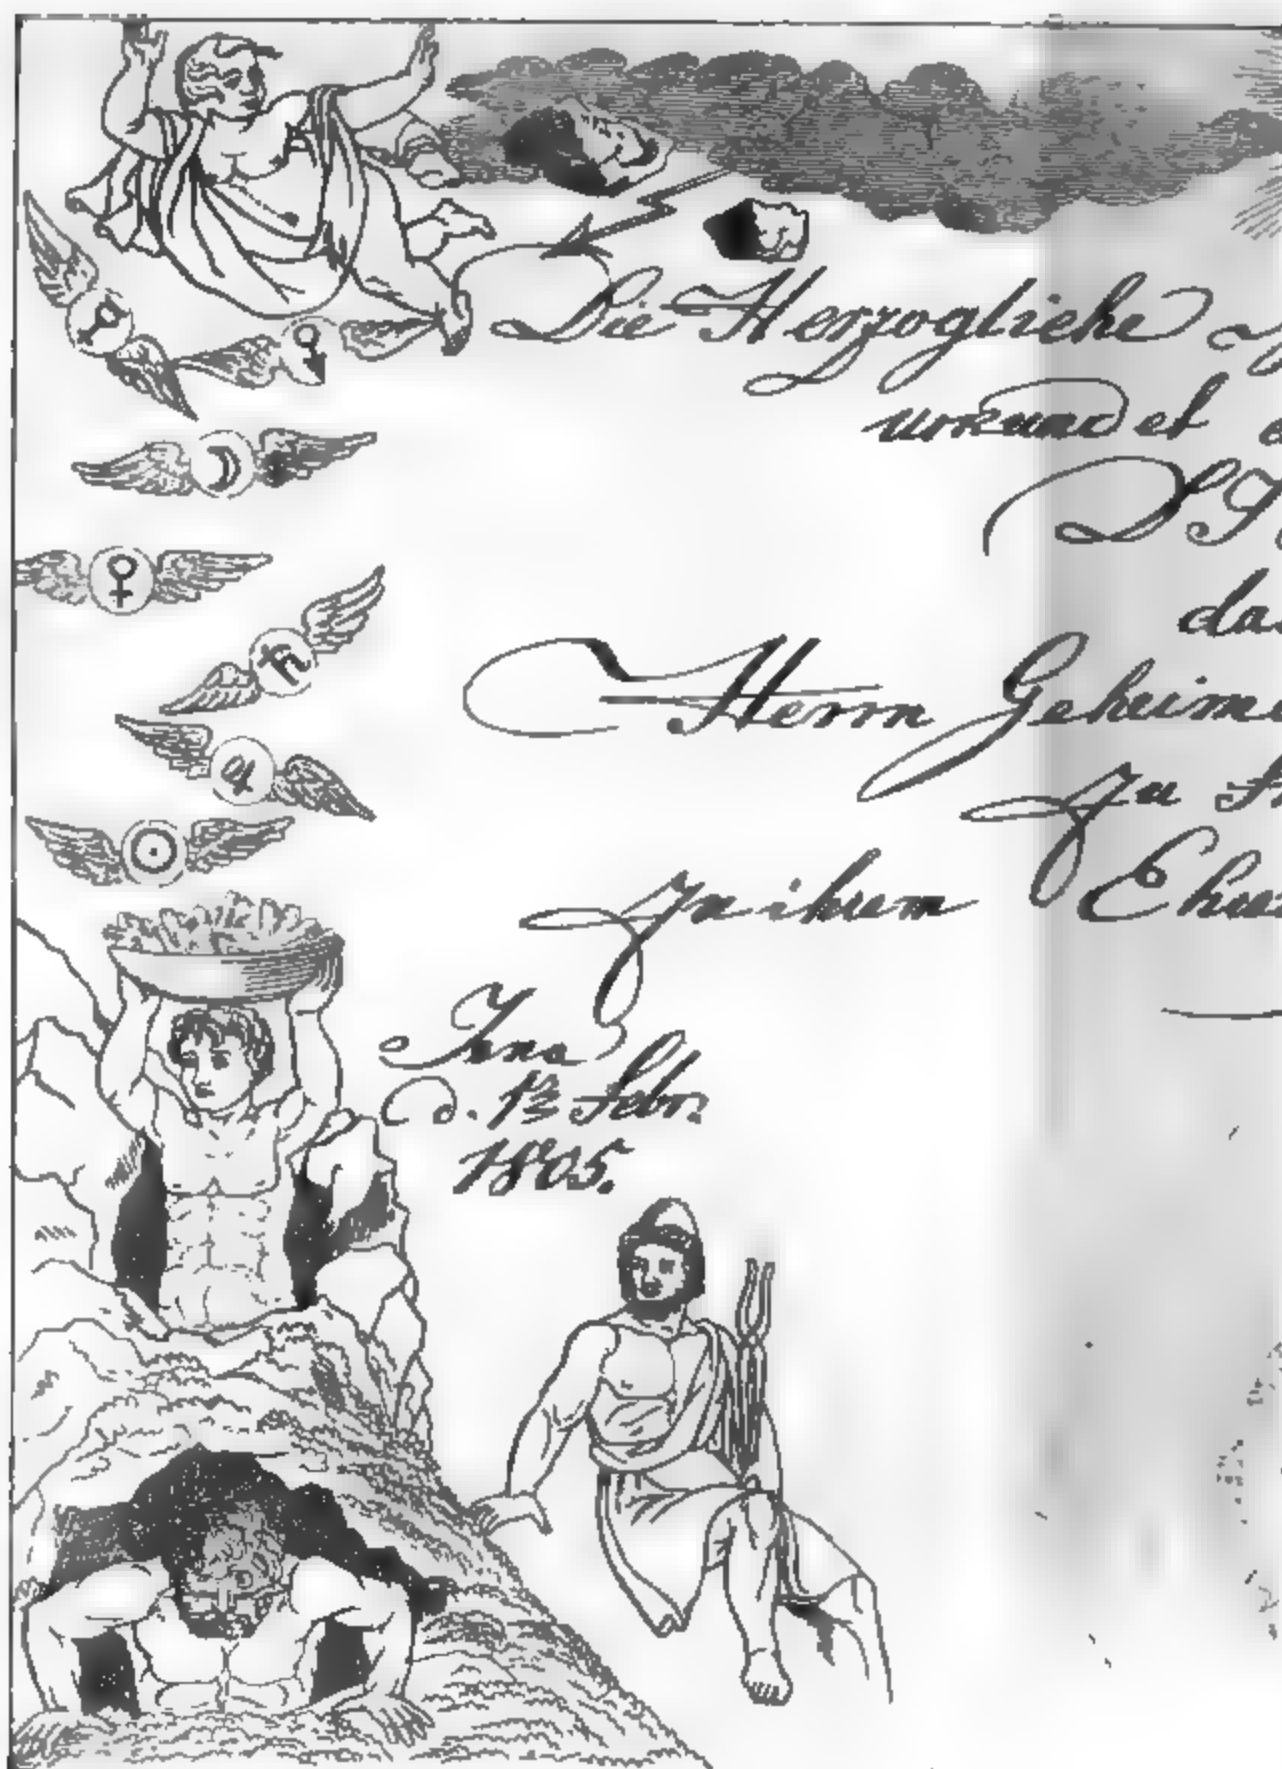 Die Herzogliche
urkundet
D J
das
Herrn Geheime
zu
In ihrem Ehren
Jena
d. 1ⁿ Febr.
1805.